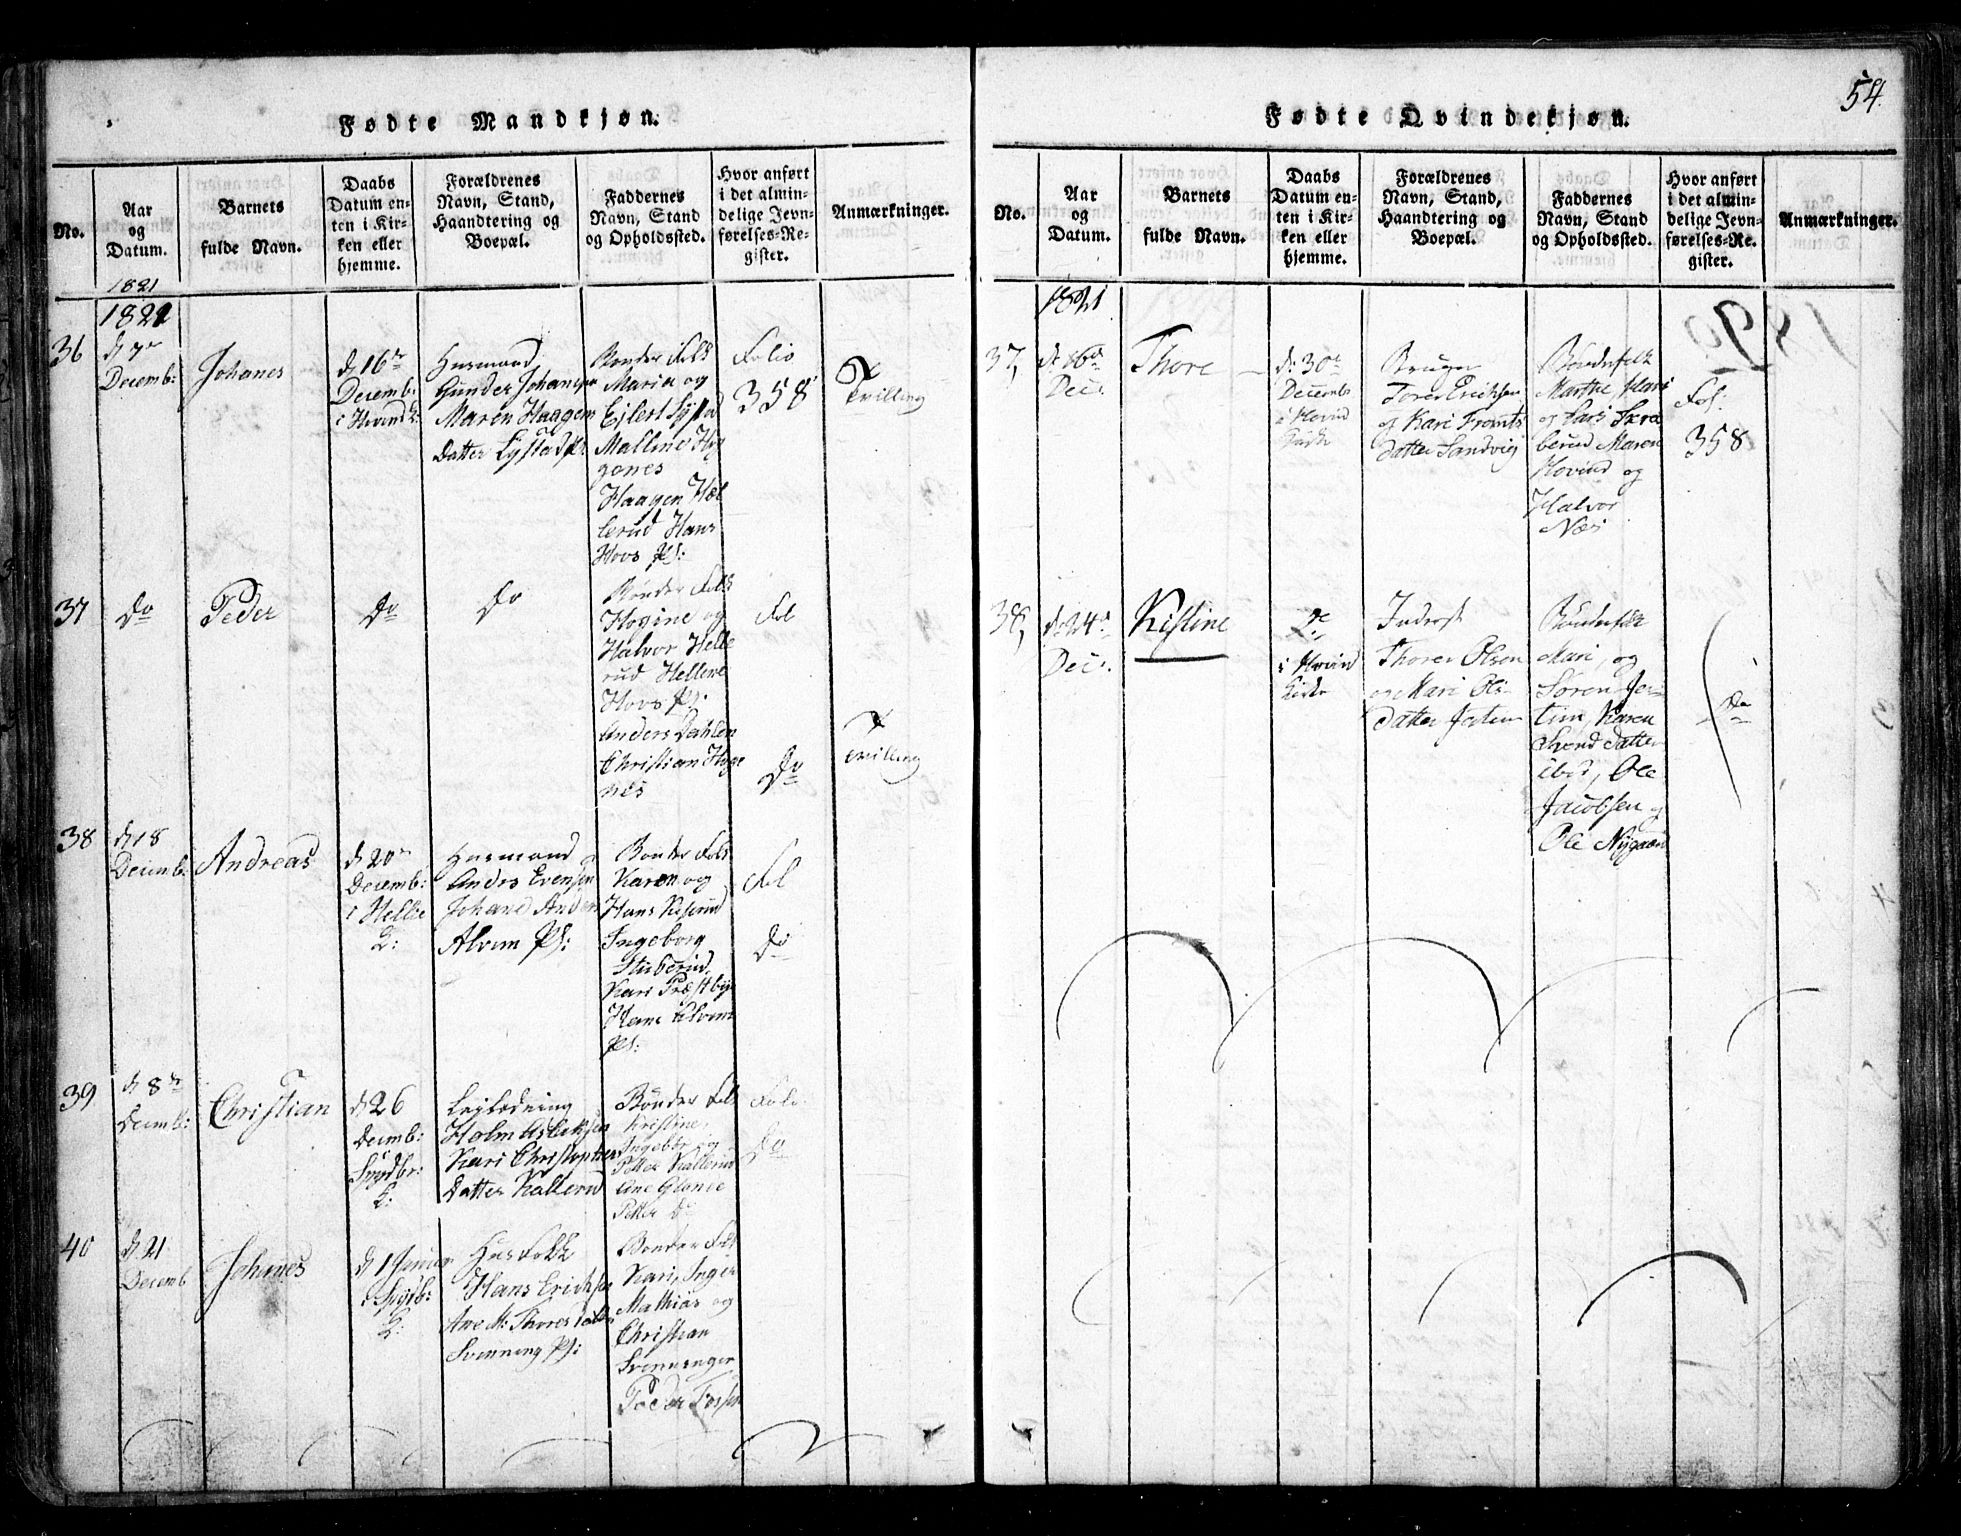 54.
Fødte Mandkjøn.
No.
Aar
og
Datum.
Barnets
fulde Navn.
Daabs
Datum en-
ten i Kir-
ken eller
hjemme.
Forældrenes
Navn, Stand,
Haandtering og
Boepæl.
Faddernes
Navn, Stand
og Opholdssted.
Hvor anført
i det almin-
delige Jevn-
førelses-Re-
gister.
Anmærkninger.
1821
1821
36
d 7de
Decemb:
Johanes
d 16de
Decemb:
i Hovind K:
Husmand
Gunder Johansen
Maren Haagens
Datter Lystad
Bønder Folk
Maria og
Eilert Lystad
Malline Hog
genes
Haagen Hel
lerud Hans
Hovs Pl:
Folio
358
Tvilling
37
Do
Peder
Do
Do
Bønder Folk
Hogine og
Halvor Helle
rud Hellene
Hovs Pl:
Anders Dahlen
Christian Hoge
nes
Fol
Do
Tvilling
38
d 18
Decemb:
Andreas
d 20de
Decemb:
i Hellie
K:
Husmand
Andrs Evensen
Johane Anders
Alvim Pl:
Bønder Folk
Karen og
Hans Kiserud
Ingeborg
Stuberud
Kari Præstbye
Hans Alvim
Pl:
Fol
Do
39
d 8de
Decemb:
Christian
d 26
Decemb:
Spydbr:
K:
Leylending
Holm Aslaksen
Kari Christophers
Datter Kallerud
Bønder Folk
Kristine,
Ingebor og
Petter Kallerud
Ane Glonie
Petter Do
Folo
Do
40
d 21
Decemb
Johanes
d 1 Januar
i Spydb:
K:
Husfolk
Hans Erichsen
Ane M: Thoresdatter
Svenning Pl:
Bønder Folk
Kari, Inger
Mathias og
Christian
Svennenger
Peder
Fødte Qvindekjøn.
No.
Aar
og
Datum.
Barnets
fulde Navn.
Daabs
Datum en-
ten i Kir-
ken eller
hjemme.
Forældrenes
Navn, Stand,
Haandtering og
Boepæl.
Faddernes
Navn, Stand
og Opholdssted.
Hvor anført
i det almin-
delige Jevn-
førelses-Re-
gister.
Anmærkninger.
1821
37,
d: 16de
Dec:
Thore
d: 30te
Decemb
i Hovind
Kirke
Bruger
Torer Erichsen
og Kari Frants
datter Sandvig
Bønderfolk
Marthe, Hans
og Lars Skre
berud Maren
Hovind og
Halvor
Næs
Fol:
358
38,
d: 24de
Dec:
Kistine
do
i Hovind
Kirke
Inderst
Thorer Olsen
og Mari Ols
datter Jertum
Bønderfolk
Mari, og
Søren Jer-
tim, Karen
Svend datter
ibid, Ole
Jacobsen og
Ole Nygaard
do